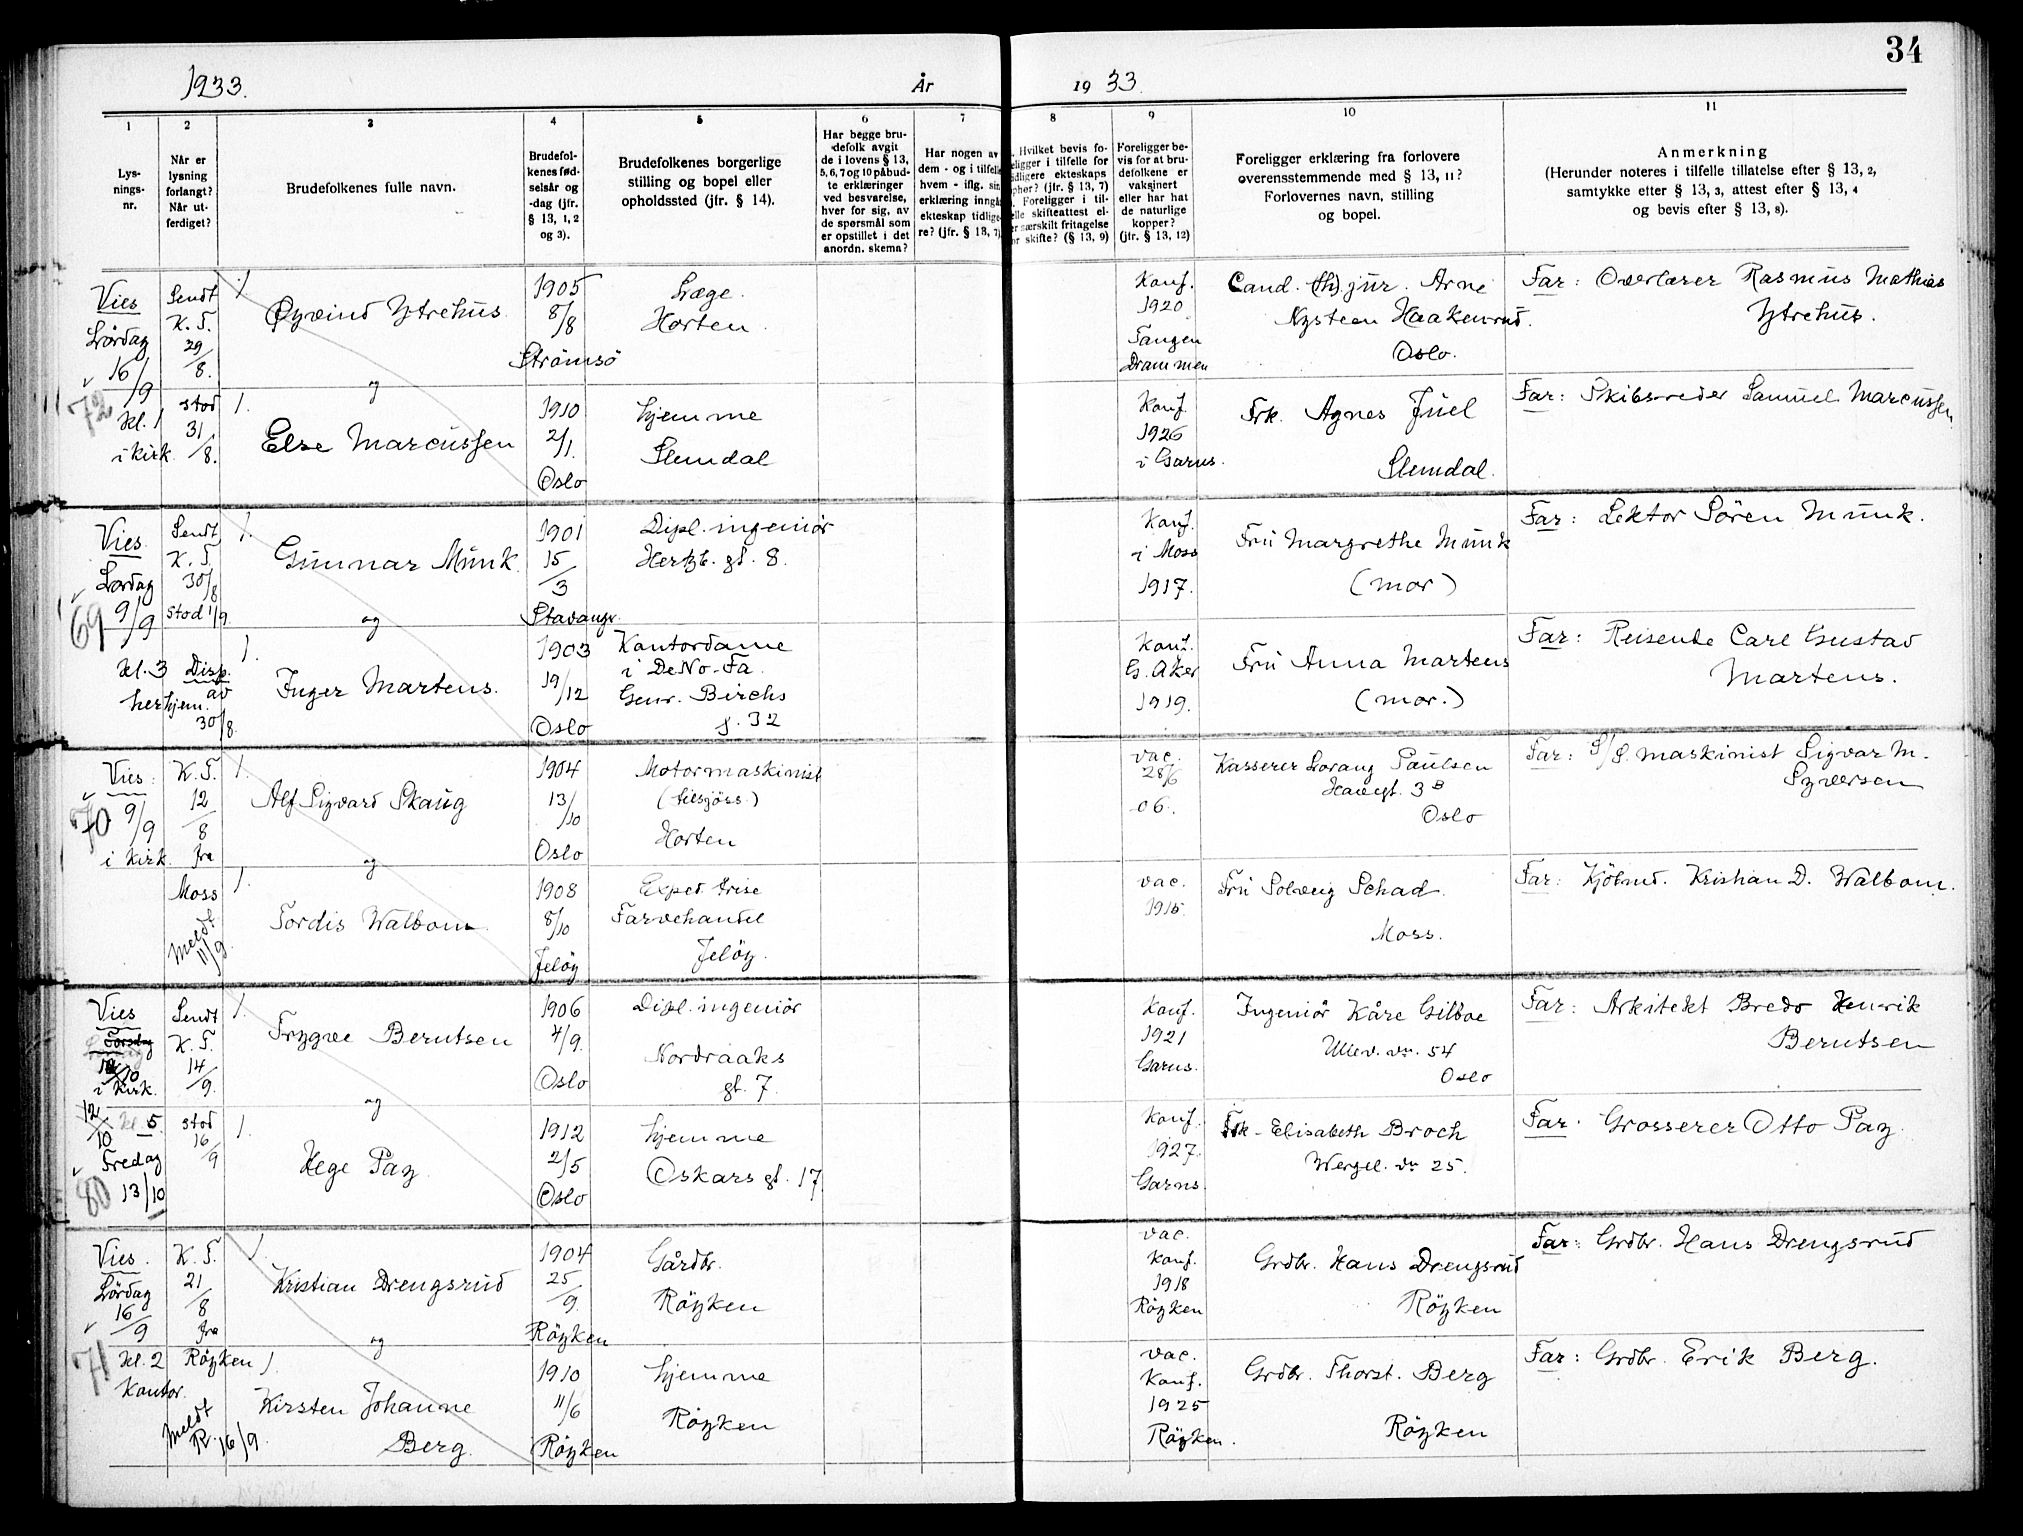 34
1933.
År
19 33.
1
2
3
4
5
6
7
8
9
10
11
Lys-
nings-
nr.
Når er
lysning
forlangt?
Når ut-
ferdiget?
Brudefolkenes fulle navn.
Brudefol-
kenes fød-
selsår og
-dag (jfr.
§ 13, 1, 2
og 3).
Brudefolkenes borgerlige
stilling og bopel eller
opholdssted (jfr. § 14).
Har begge bru-
defolk avgit
de i lovens § 13,
5, 6, 7 og 10 påbud-
te erklæringer
ved besvarelse,
hver for sig, av
de spørsmål som
er opstillet i det
anordn. skema?
Har nogen av
dem - og i tilfelle
hvem - iflg. sin
erklæring inngå
ekteskap tidlige-
re? (jfr. § 13, 7)
Hvilket bevis fo-
eligger i tilfelle for
idligere ekteskaps
phør? (jfr. § 13, 7)
Foreligger i til-
elle skifteattest el-
er særskilt fritagelse
or skifte? (§ 13, 9)
Foreligger be-
vis for at bru-
defolkene er
vaksinert
eller har hat
de naturlige
kopper?
(jfr. § 13, 12)
Foreligger erklæring fra forlovere
overensstemmende med § 13, 11?
Forlovernes navn, stilling
og bopel.
Anmerkning
(Herunder noteres i tilfelle tillatelse efter § 13, 2,
samtykke efter § 13, 3, attest efter § 13, 4
og bevis efter § 13, 8).
Vies
Lördag
16/9
72
kl. 1
i kirk.
Sendt
K. T.
29/8.
stod
31/8.
Øyvind Ytrehus
1905
8/8
Strömsö
Læge.
Horten.
Konf.
1920
Tangen
Drammen
Cand. jur. Arne
Nysteen Haakenrud.
Oslo.
Far: Overlærer Rasmus Mathias
Ytrehus.
og
Else Marcussen
1910
2/1.
Oslo
hjemme
Slemdal
Konf.
1926
i Garns.
Frk. Agnes Juel
Slemdal.
Far: Skibsreder Samuel Marcussen
Vies
Lördag
9/9
69
kl. 3
her hjem.
Sendt
K. T.
30/8
stod 1/9
Disp.
av
30/8.
Gunnar Munk.
1901
15/3
Stavangr.
Dipl. ingeniör
Hertzb. gt. 8.
Konf.
i Moss
1917.
Fru Margrethe Munk
(mor)
Far: Lektor Sören Munk.
og
Inger Martens.
1903
19/12
Oslo
Kontordame
i DeNo-Fa.
Genr. Birchs
g. 32
Konf.
G. Aker
1919.
Fru Anna Martens
(mor.)
Far: Reisende Carl Gustav
Martens.
Vies.
9/9
70
i kirk.
K. T.
12/8
fra
Moss
Meldt
11/9.
Alf Sigvard Skaug
1904
13/10
Oslo
Motormaskinist
(tilsjöss.)
Horten
vac.
28/6
06.
Kasserer Lorang Paulsen
3 B
Oslo
Far: S/S. maskinist Sigvar M.
Syversen
og
Tordis Walbom
1908
8/10
Jelöy
Exped. trise
Farvehandel
Jelöy.
vac.
1915.
Fru Solveig Schad.
Moss.
Far: Kjöbmd. Kristian D. Walbom.
Vies
Torsdag
i kirk.
12/10
kl. 5.
Fredag
13/10
80
Sendt
K. T.
14/9.
stod
16/9
Trygve Berntsen
1906
4/9.
Oslo
Dipl. ingeniör
Nordraaks
gt. 7.
Konf.
1921
Garns.
Ingeniör Kåre Gilboe
Ullev. vn. 54
Oslo
Far: Arkitekt Bredo Henrik
Berntsen
og
Hege Pay.
1912
2/5
Oslo
hjemme
Oskars gt. 17
Konf.
1927.
Garns.
Frk. Elisabeth Broch
Wergel. vn 25.
Far. Grosserer Otto Pay.
Vies.
Lördag
16/9
71
kl. 2
Kontor.
K. T.
21/8
fra
Röyken
Meldt
R. 16/9.
Kristian Drengsrud
1904
25/9.
Röyken
Gårdbr.
Röyken
vac.
Konf.
1918
Röyken
Grdbr. Hans Drengsrud
Röyken
Far: Grdbr. Hans Drengsrud
og
Kirsten Johanne
Berg.
1910
11/6
Röyken
hjemme
Röyken
vac.
Konf.
1925
Röyken.
Grdbr. Thorst. Berg
Röyken
Far: Grdbr. Erik Berg.